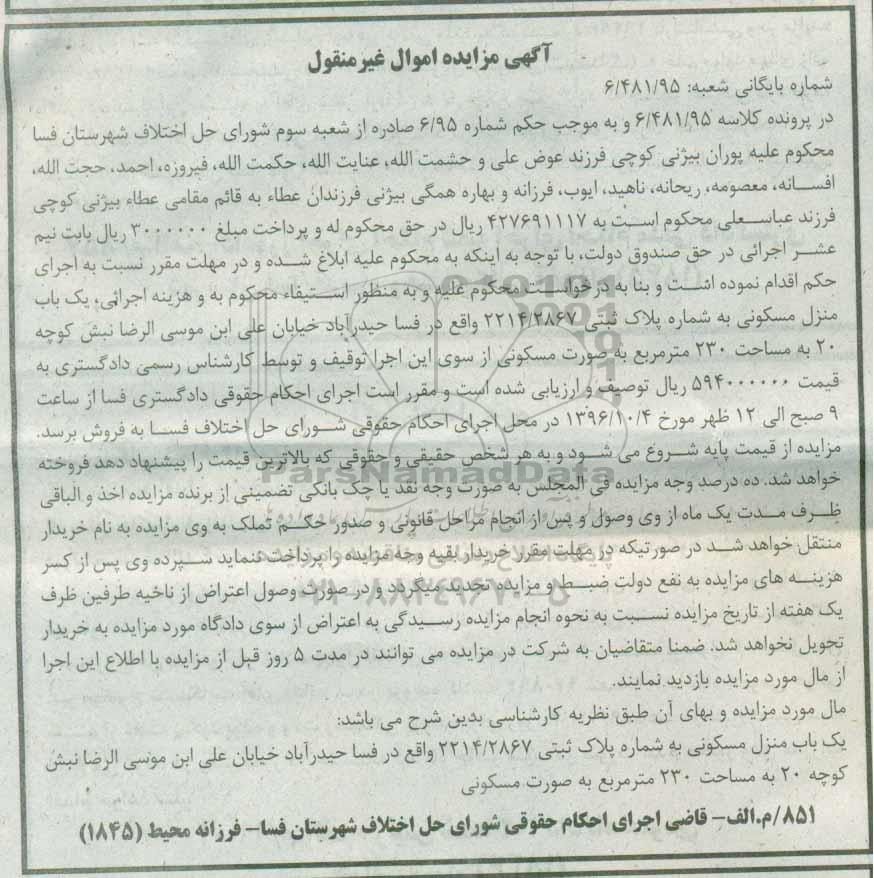 آگهی مزایده اموال غیرمنقول
شماره بایگانی شعبه: ۶/۴۸۱/۹۵
در پرونده کلاسه ۶/۴۸۱/۹۵ و به موجب حکم شماره ۶/۹۵ صادره از شعبه سوم شورای حل اختلاف شهرستان فسا
محکوم علیه پوران بیژنی کوچی فرزند عوض علی و حشمت الله، عنایت الله، حکمت الله، فیروزه، احمد، حجت الله،
افسانه، معصومه، ریحانه، ناهید، ایوب، فرزانه و بهاره همگی بیژنی فرزندان عطاء به قائم مقامی عطاء بیژنی کوچی
فرزند عباسعلی محکوم است به ۴۲۷۶۹۱۱۱۷ ریال در حق محکوم له و پرداخت مبلغ ۳۰۰۰۰۰۰ ریال بابت نیم
عشر اجرائی در حق صندوق دولت، با توجه به اینکه به محکوم علیه ابلاغ شده و در مهلت مقرر نسبت به اجرای
حکم اقدام نموده است و بنا به درخواست محکوم علیه و به منظور استیفاء محکوم به و هزینه اجرائی، یک باب
منزل مسکونی به شماره پلاک ثبتی ۲۲۱۴/۲۸۶۷ واقع در فسا حیدرآباد خیابان علی ابن موسی الرضا نبش کوچه
۲۰ به مساحت ۲۳۰ مترمربع به صورت مسکونی از سوی این اجرا توقیف و توسط کارشناس رسمی دادگستری به
قیمت ۵۹۴۰۰۰۰۰۰ ریال توصیف و ارزیابی شده است و مقرر است اجرای احکام حقوقی دادگستری فسا از ساعت
۹ صبح الی ۱۲ ظهر مورخ ۱۳۹۶/۱۰/۴ در محل اجرای احکام حقوقی شورای حل اختلاف فسا به فروش برسد.
مزایده از قیمت پایه شروع می شود و به هر شخص حقیقی و حقوقی که بالاترین قیمت را پیشنهاد دهد فروخته
خواهد شد. ده درصد وجه مزایده فی المجلس به صورت وجه نقد یا چک بانکی تضمینی از برنده مزایده اخذ و الباقی
ظرف مدت یک ماه از وی وصول و پس از انجام مراحل قانونی و صدور حکم تملک به وی مزایده به نام خریدار
منتقل خواهد شد در صورتیکه در مهلت مقرر خریدار بقیه وجه مزایده را پرداخت ننماید سپرده وی پس از کسر
هزینه های مزایده به نفع دولت ضبط و مزایده تجدید میگردد و در صورت وصول اعتراض از ناحیه طرفین ظرف
یک هفته از تاریخ مزایده نسبت به نحوه انجام مزایده رسیدگی به اعتراض از سوی دادگاه مورد مزایده به خریدار
تحویل نخواهد شد. ضمنا متقاضیان به شرکت در مزایده می توانند در مدت ۵ روز قبل از مزایده با اطلاع این اجرا
از مال مورد مزایده بازدید نمایند.
مال مورد مزایده و بهای آن طبق نظریه کارشناسی بدین شرح می باشد:
یک باب منزل مسکونی به شماره پلاک ثبتی ۲۲۱۴/۲۸۶۷ واقع در فسا حیدرآباد خیابان علی ابن موسی الرضا نبش
کوچه ۲۰ به مساحت ۲۳۰ مترمربع به صورت مسکونی
۸۵۱/م.الف- قاضی اجرای احکام حقوقی شورای حل اختلاف شهرستان فسا- فرزانه محیط (۱۸۴۵)
ParsNamadData